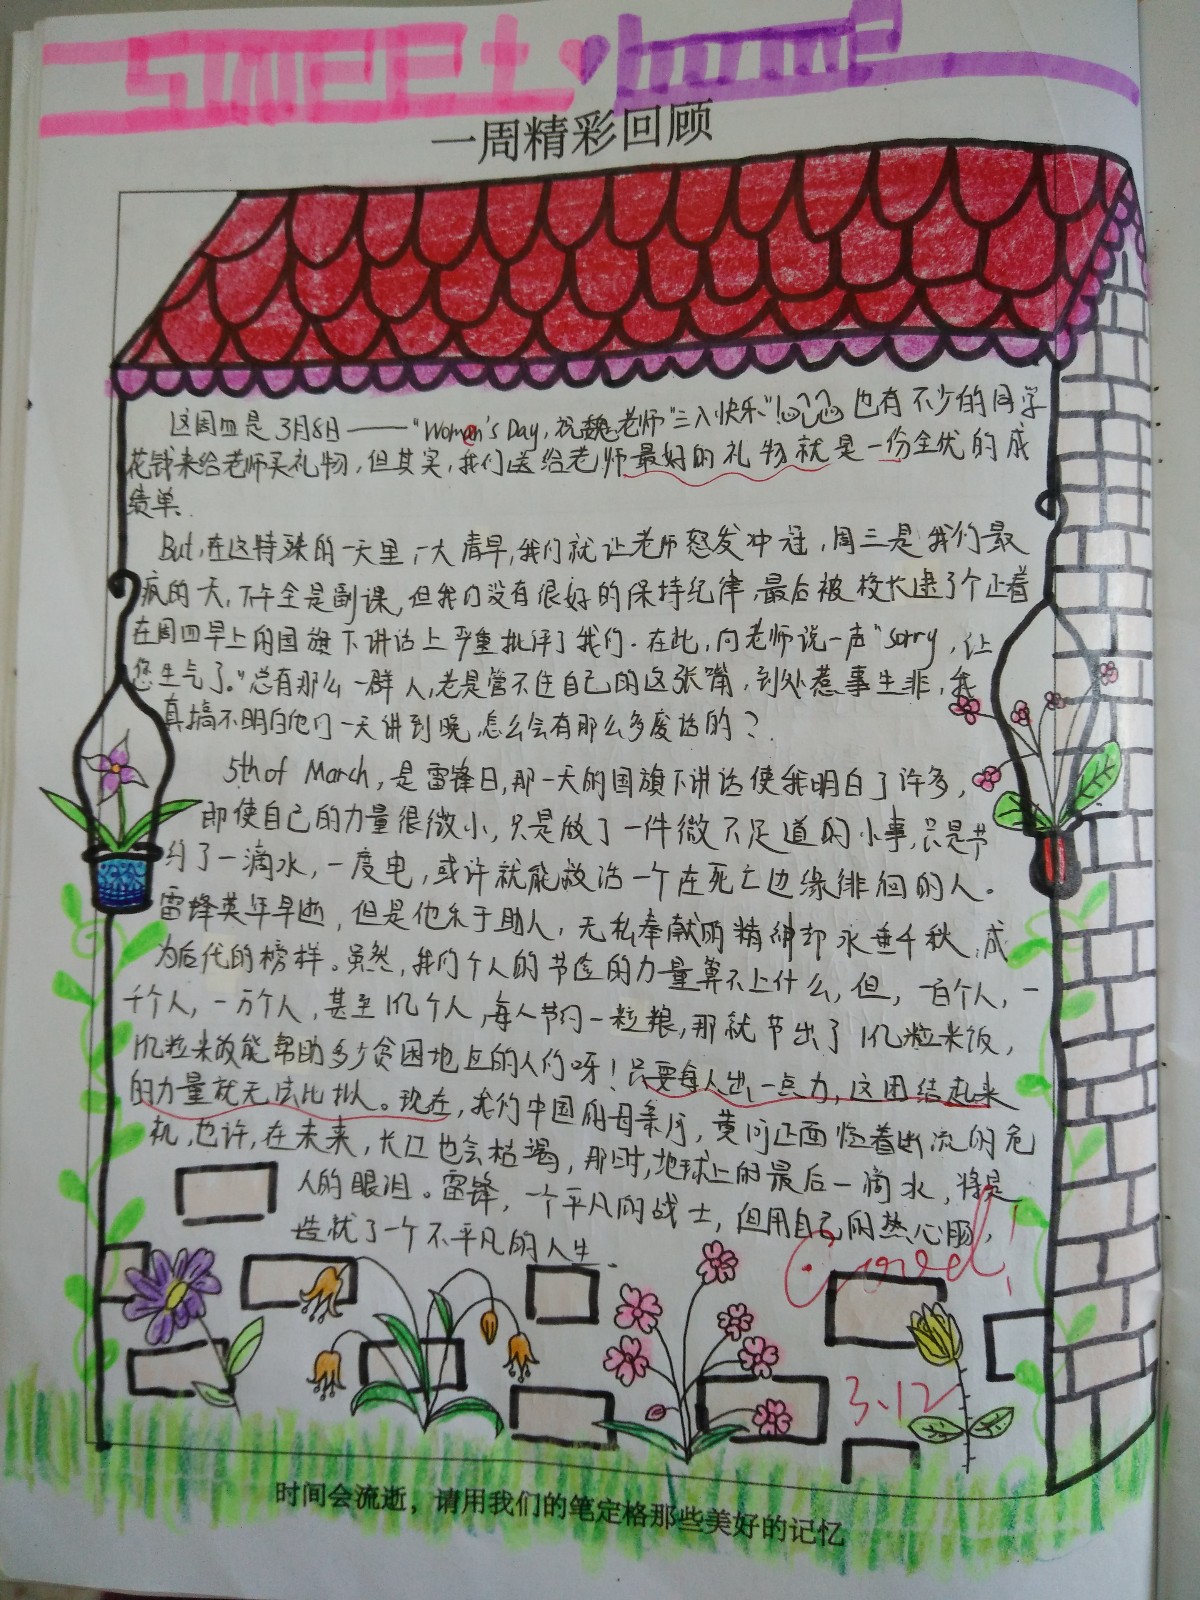 SWEET home
一周精彩回顾
这周四是3月8日——"Women's Day,祝魏老师"三八快乐"! 也有不少的同学
花钱来给老师买礼物,但其实,我们送给老师最好的礼物就是一份全优的成
绩单.
But,在这特殊的一天里,一大清早,我们就让老师怒发冲冠,周三是我们最
疯的一天,下午全是副课,但我们没有很好的保持纪律,最后被校长逮了个正着
在周四早上的国旗下讲话上严重批评了我们.在此,向老师说一声"sorry,让
您生气了。"总有那么一群人,老是管不住自己的这张嘴,到处惹事生非,我
真搞不明白他们一天讲到晚,怎么会有那么多废话的?
5th of March,是雷锋日,那一天的国旗下讲话使我明白了许多,
即使自己的力量很微小,只是做了一件微不足道的小事,只是节
约了一滴水,一度电,或许就能救治一个在死亡边缘徘徊的人。
雷锋英年早逝,但是他乐于助人,无私奉献的精神却永垂千秋,成
为后代的榜样。虽然,我们个人的节俭的力量算不上什么,但,一百个人,一
千个人,一万个人,甚至1亿个人,每人节约一粒粮,那就节出了1亿粒米饭,
1亿粒米饭能帮助多少贫困地区的人们呀!只要每人出一点力,这团结起来
的力量就无法比拟。现在,我们中国的母亲河,黄河正面临着断流的危
机,也许,在未来,长江也会枯竭,那时,地球上的最后一滴水,将是
人的眼泪。雷锋,一个平凡的战士,但用自己的热心肠,
造就了一个不平凡的人生.
Good!
3.12
时间会流逝,请用我们的笔定格那些美好的记忆